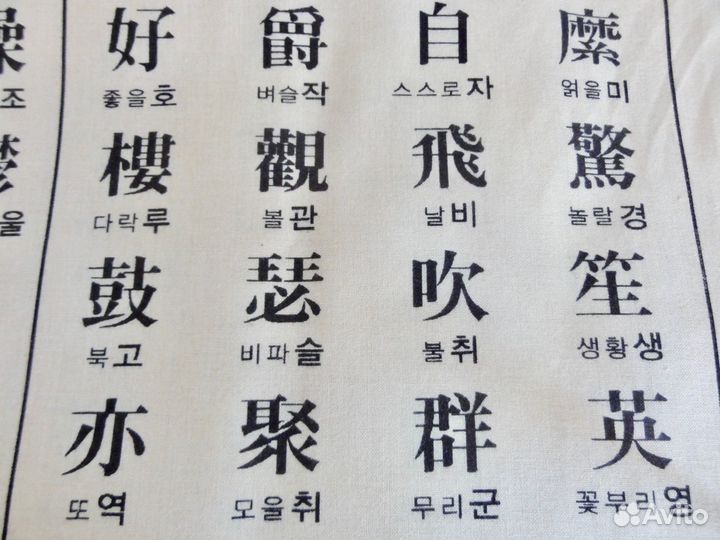 好 爵 自 縻
좋을호 벼슬작 스스로자 얽을미
樓 觀 飛 驚
다락루 볼관 날비 놀랄경
鼓 瑟 吹 笙
북고 비파슬 불취 생황생
亦 聚 群 英
또역 모을취 무리군 꽃부리영
조
울
Avito